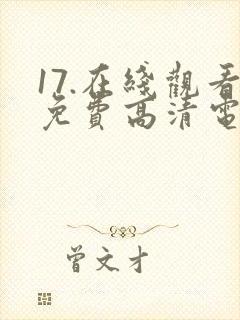 17.在綫觀看
免費高清電
曾文才